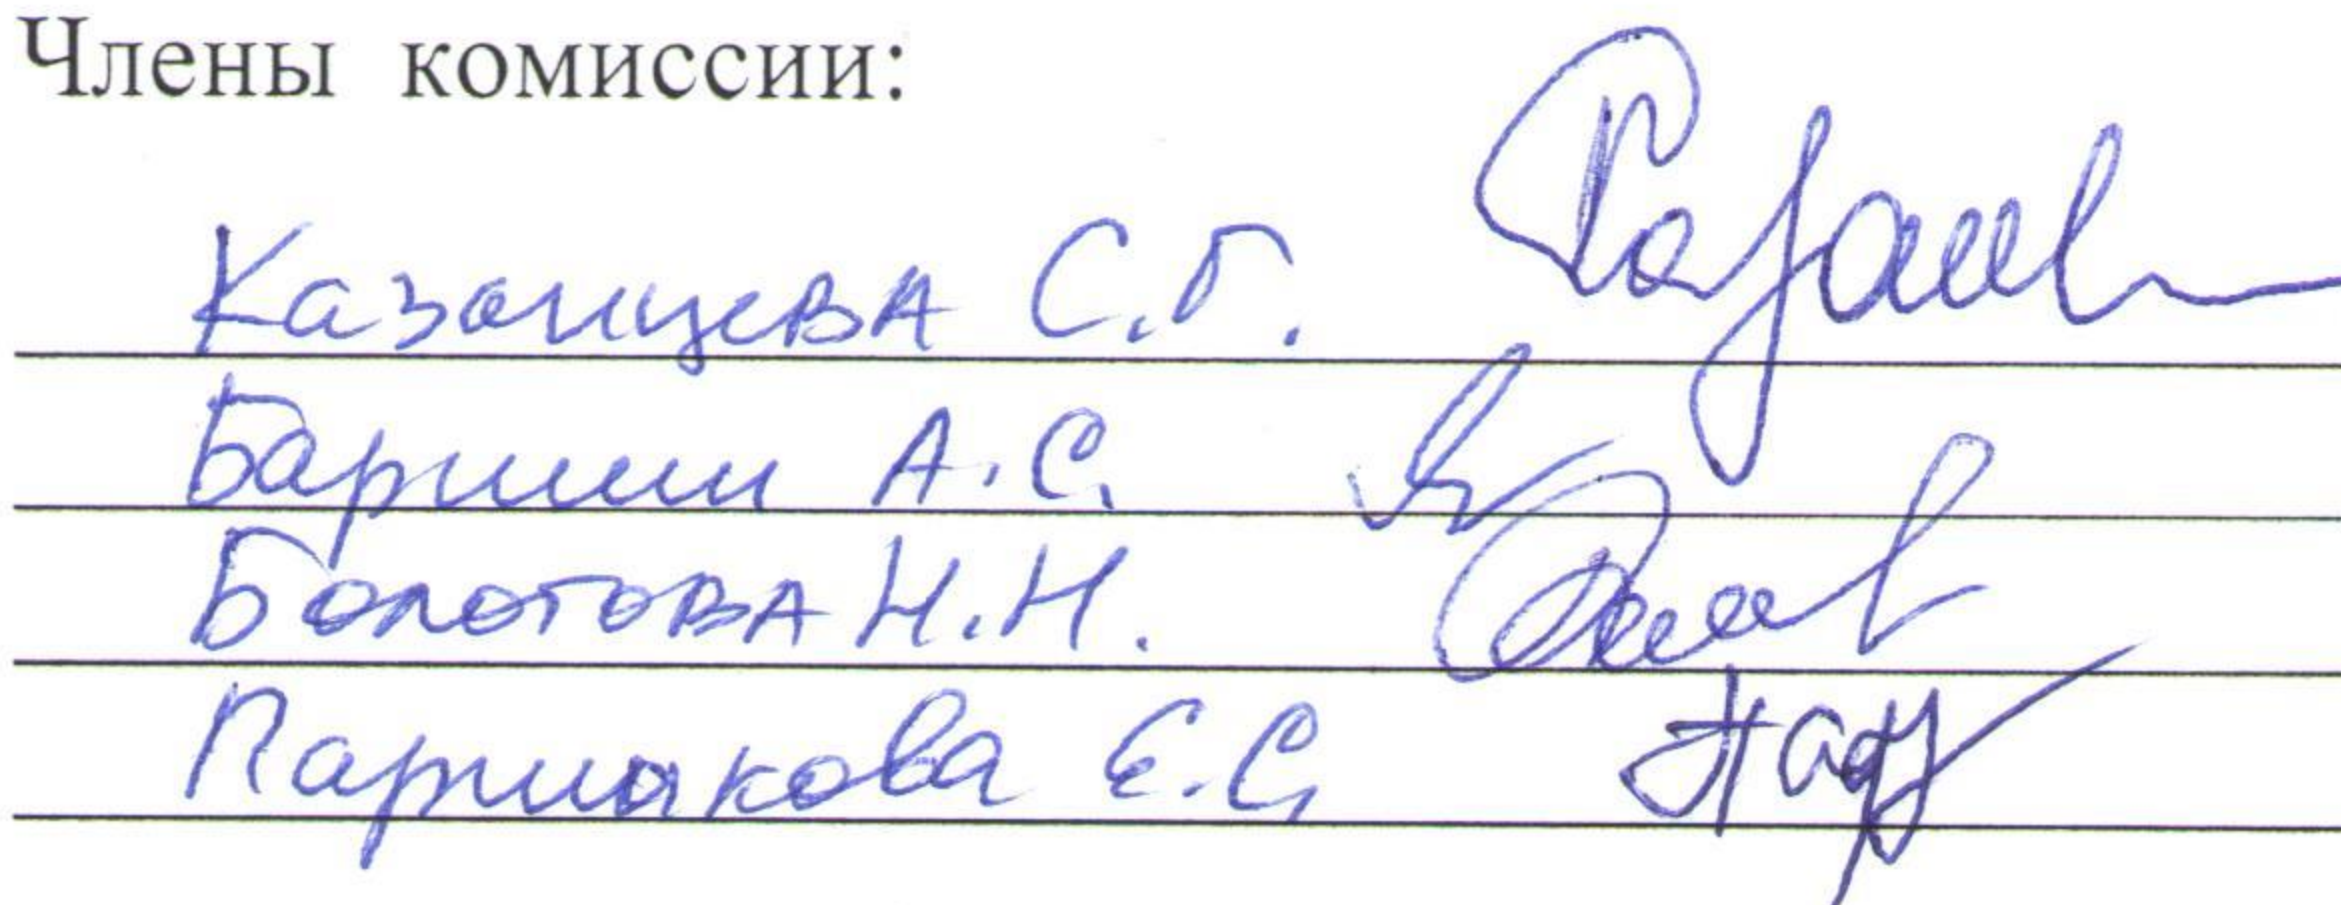 Члены комиссии:
Казанцева С.Г.
А.С.
Болотова Н.Н.
Паршакова Е.С.